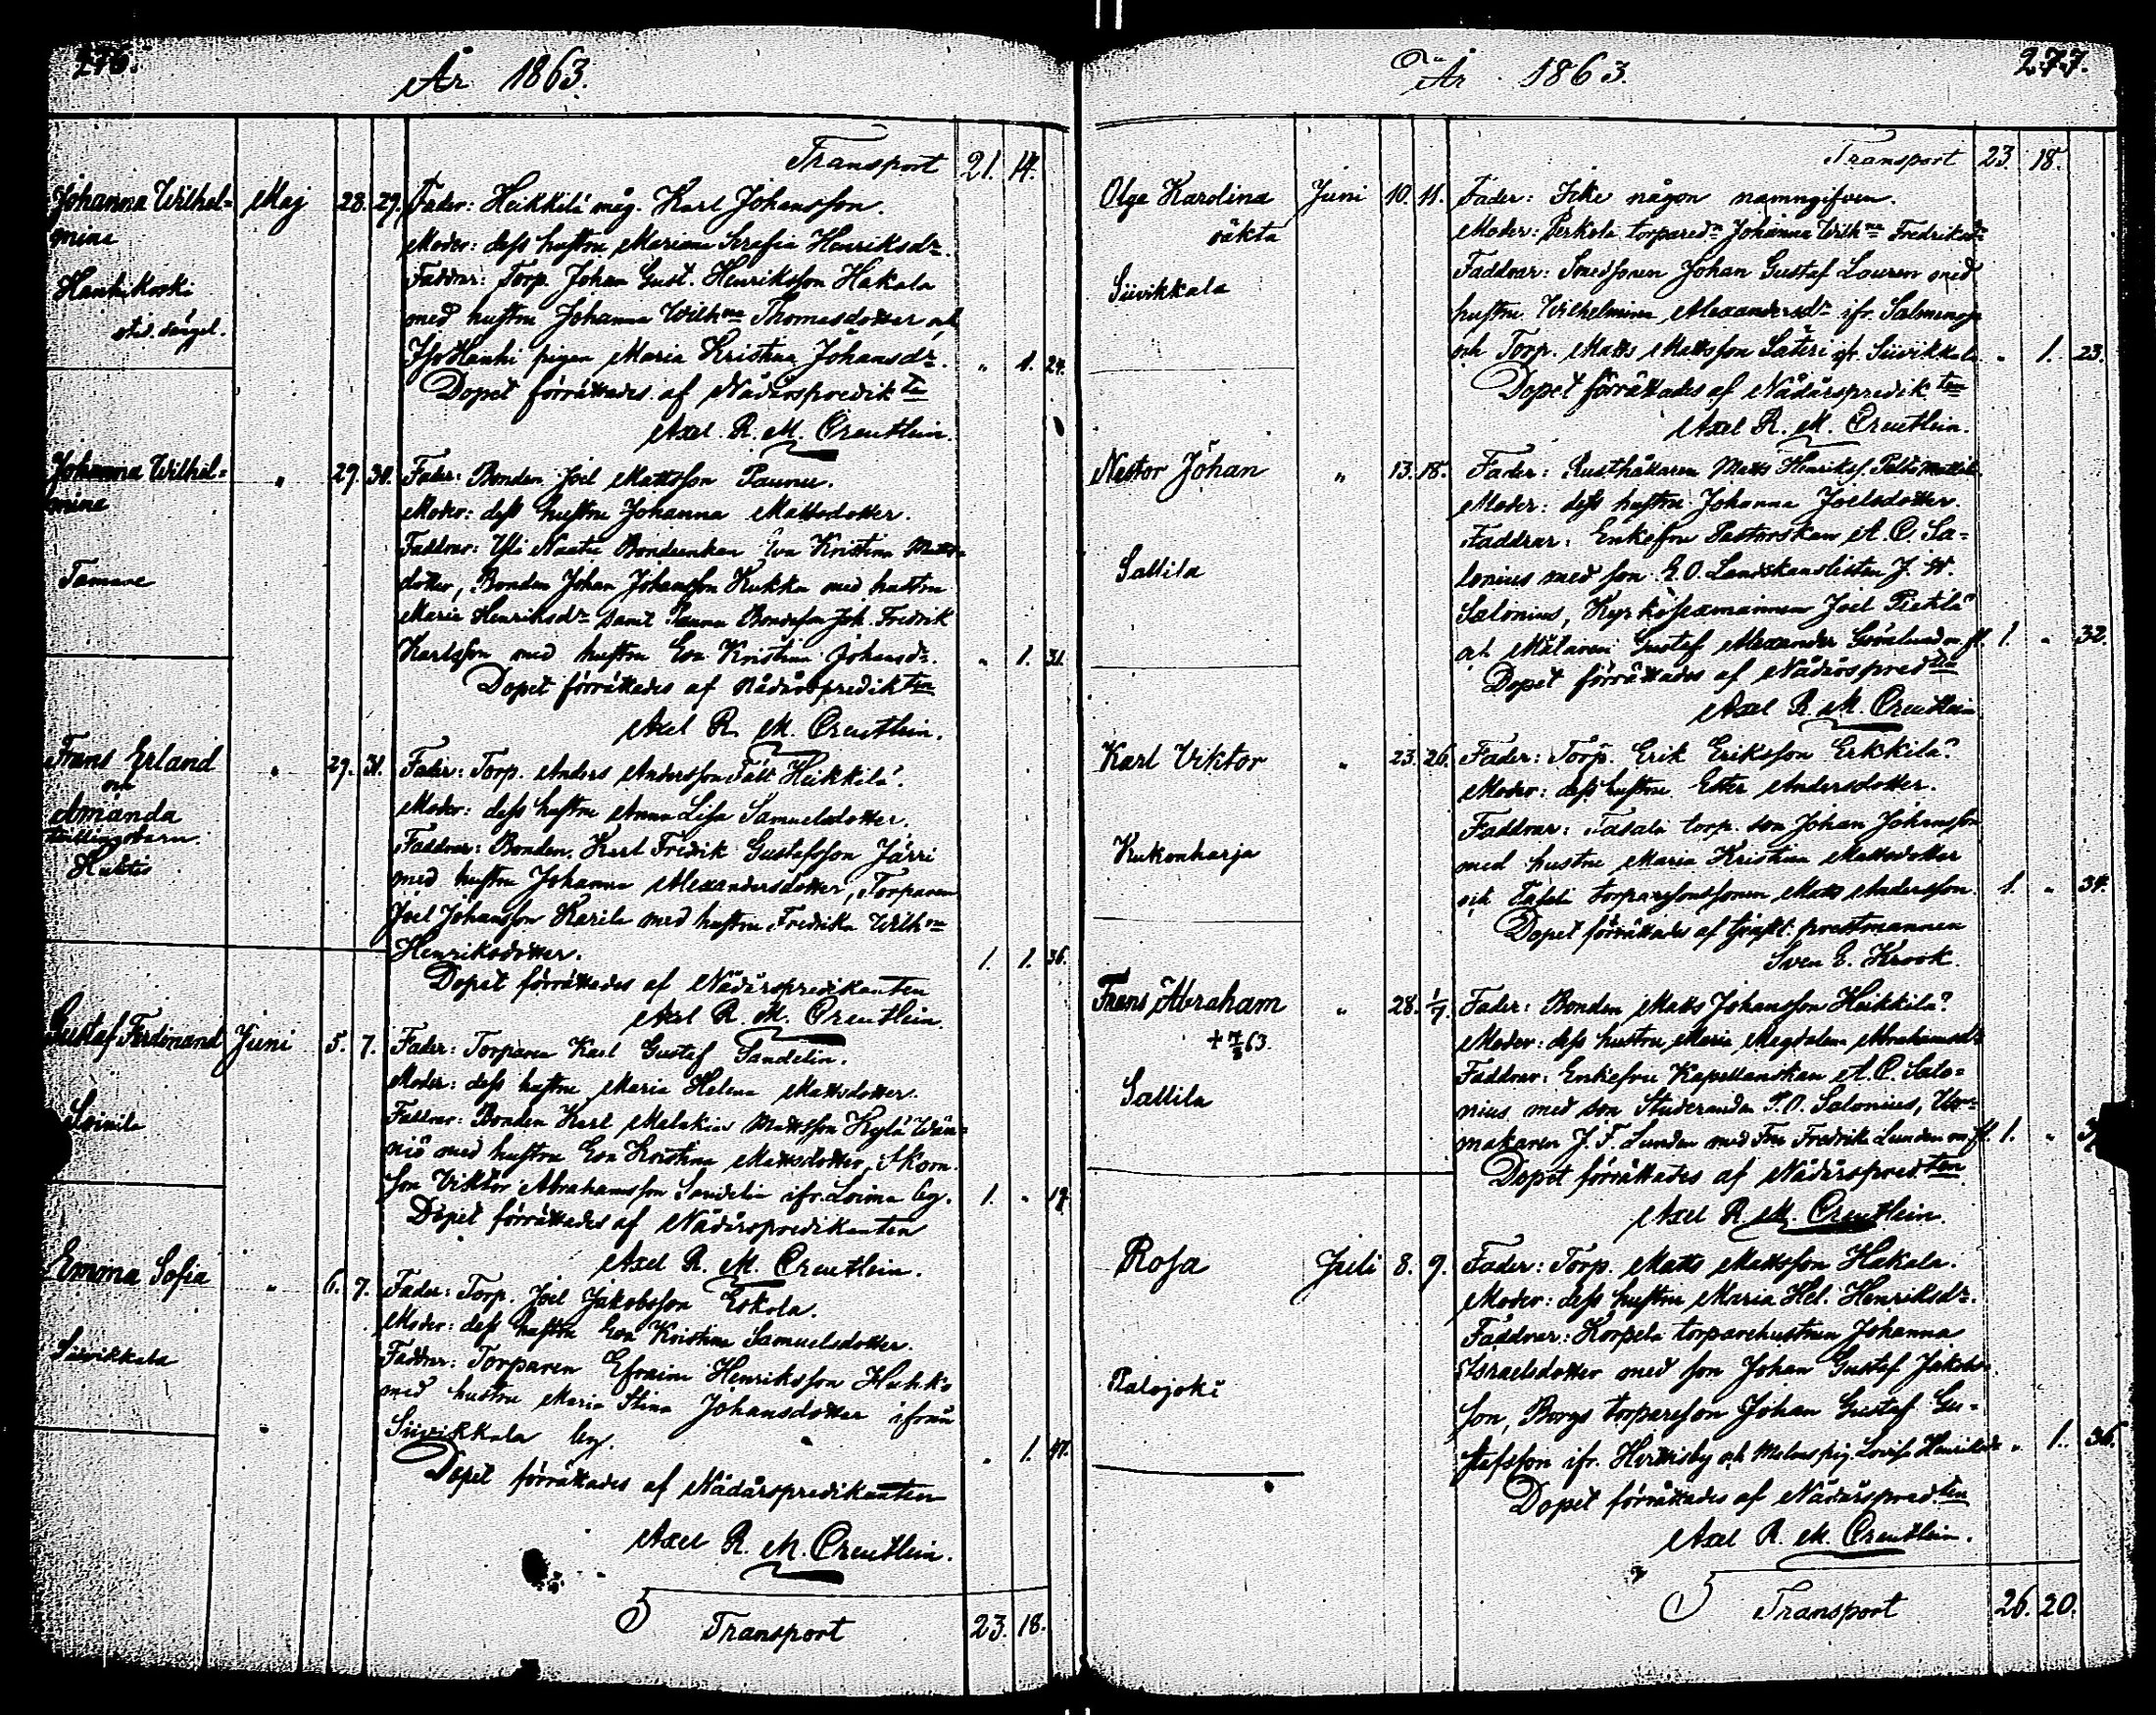 276.
År 1863.
Transport 21. 14.
Johanna Wilhel= Maj 28. 29. Fader: Heikkilä måg. Karl Johansson.
mina Moder: dess hustru Mariana Serafia Henriksdr.
Hanhikoski Faddrar: Torp. Johan Gust. Henriksson Hakala
med hustru Johanna Wilhna Thomasdotter och
Iso Hanhi pigan Maria Kristina Johansdr. " 1. 24.
Dopet förrättades af Nådårspredikten
Axel R. M. Creutlein.
Johanna Wilhel= " 29. 30. Fader: Bonden Joel Mattsson Paunu.
mina Moder: dess hustru Johanna Mattsdotter.
Faddrar: Yli Naatu Bondeenkan Eva Kristina Matts=
Tamare dotter, Bonden Johan Johansson Kukka med hustru
Maria Henriksdr samt Paunu Bondeson Joh. Fredrik
Karlsson med hustru Eva Kristina Johansdr. " 1. 31.
Dopet förrättades af Nådårspredikten
Axel R. M. Creutlein.
Frans Erland " 29. 31. Fader: Torp. Anders Andersson Fält Heikkilä.
och Moder: dess hustru Anna Lisa Samuelsdotter.
Amanda
tvillingebarn. Faddrar: Bonden Karl Fredrik Gustafsson Järri
Huhtis med hustru Johanna Alexandersdotter, Torparen
Joel Johansson Karila med hustru Fredrika Wilhna
Henriksdotter. 1. 1. 36.
Dopet förrättades af Nådårspredikanten
Axel R. M. Creutlein.
Gustaf Ferdinand Juni 5. 7. Fader: Torparen Karl Gustaf Sandelin.
Moder: dess hustru Maria Helena Mattsdotter.
Faddrar: Bonden Karl Malakias Mattsson Kylä Wäi=
niö med hustru Eva Kristina Mattsdotter, Skom.
son Viktor Abrahamsson Sandelin ifr. Loima by. 1. " 19.
Dopet förrättades af Nådårspredikanten
Axel R. M. Creutlein.
Emma Sofia " 6. 7. Fader: Torp. Joel Jakobsson Eskola.
Moder: dess hustru Eva Kristina Samuelsdotter.
Siivikkala Faddrar: Torparen Efraim Henriksson Huhko
med hustru Maria Stina Johansdotter ifrån
Siivikkala by. " 1. 47.
Dopet förrättades af Nådårspredikanten
Axel R. M. Creutlein.
Transport 23. 18.
År 1863.
277.
Transport 23. 18.
Olga Karolina Juni 10. 11. Fader: Icke någon namngifven.
oäkta Moder: Perkola torpared. Johanna Wilhna Fredriksdr
Siivikkala Faddrar: Smedsonen Johan Gustaf Lauren med
hustru Wilhelmina Alexandersdr ifr. Salmenoja
och Torp. Matts Mattsson Säteri ifr. Siivikkala. " 1. 23.
Dopet förrättades af Nådårspredikten
Axel R. M. Creutlein.
Nestor Johan " 13. 18. Fader: Rusthållaren Matts Henriks. Pelto Mattila
Moder: dess hustru Johanna Joelsdotter.
Sallila Faddrar: Enkefru Pastorskan A. C. Sa=
lonius med son E. O. Landskanslisten J. W.
Salonius, Kyrkosexmannen Joel Pietilä
och Målaren Gustaf Alexander Grönlund m. fl. 1. " 32.
Dopet förrättades af Nådårspredten
Axel R. M. Creutlein
Karl Viktor " 23. 26. Fader: Torp. Erik Eriksson Erkkilä.
Moder: dess hustru Ester Andersdotter.
Kukonharja Faddrar: Tasala torp. son Johan Johansson
med hustru Maria Kristina Mattsdotter
och Tasala torparesonssonen Matts Andersson. 1. " 34.
Dopet förrättades af prestmannen
Sven E. Krook.
Frans Abraham " 28. 1/7. Fader: Bonden Matts Johansson Heikkilä.
Moder: dess hustru Maria Magdalena Abrahamsdr
Sallila Faddrar: Enkefru Kapellanskan A. C. Salo=
nius med son Studeranden T. O. Salonius, Ur=
makaren J. F. Lunden med Fru Fredrika Lunden m. fl. 1. "
Dopet förrättades af Nådårspredten
Axel R. M. Creutlein.
Rosa Juli 8. 9. Fader: Torp. Matts Mattsson Hakala.
Moder: dess hustru Maria Hel. Henriksdr.
Faddrar: Korpela torparehustrun Johanna
Palojoki Israelsdotter med son Johan Gustaf Jakobs=
son, Borgs torpareson Johan Gustaf Gu=
stafsson ifr. Hirttisby och pig. Lovisa Henriksdr " 1. 36.
Dopet förrättades af Nådårspredten
Axel R. M. Creutlein.
Transport 26. 20.